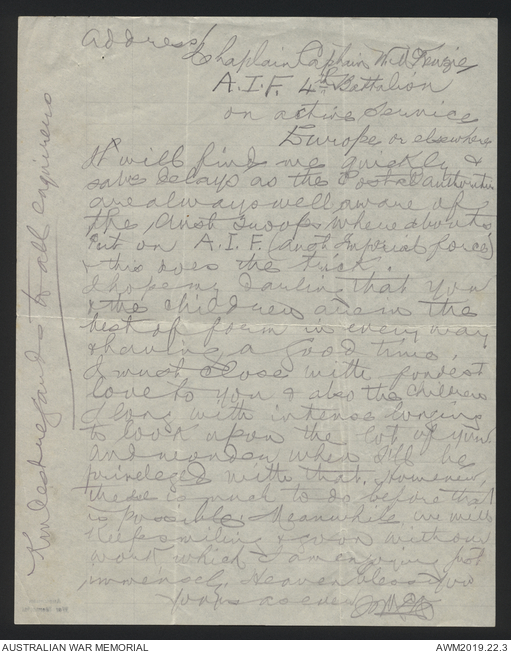 Address/
Chaplain Captain McKenzie
A.I.F. 4th Battalion
on active service
Europe or elsewhere
It will find me quickly &
save delays as the Postal authorities
are always well aware of
the Aust Troops whereabouts
Put on A.I.F. (Aust Imperial forces)
& this does the trick.
I hope my darling that you
& the children are in the
best of form in every way
& having a good time.
I must close with fondest
love to you & also the children
I long with intense longing
to look upon the lot of you
and wonder when I'll be
privileged with that. However,
there is much to do before that
is possible. Meanwhile we will
keep smiling & go on with our
work which I am enjoying just
immensely. Heaven bless you
Yours as ever
Kindest regards to all enquirers
AUSTRALIAN WAR MEMORIAL
AWM2019.22.3